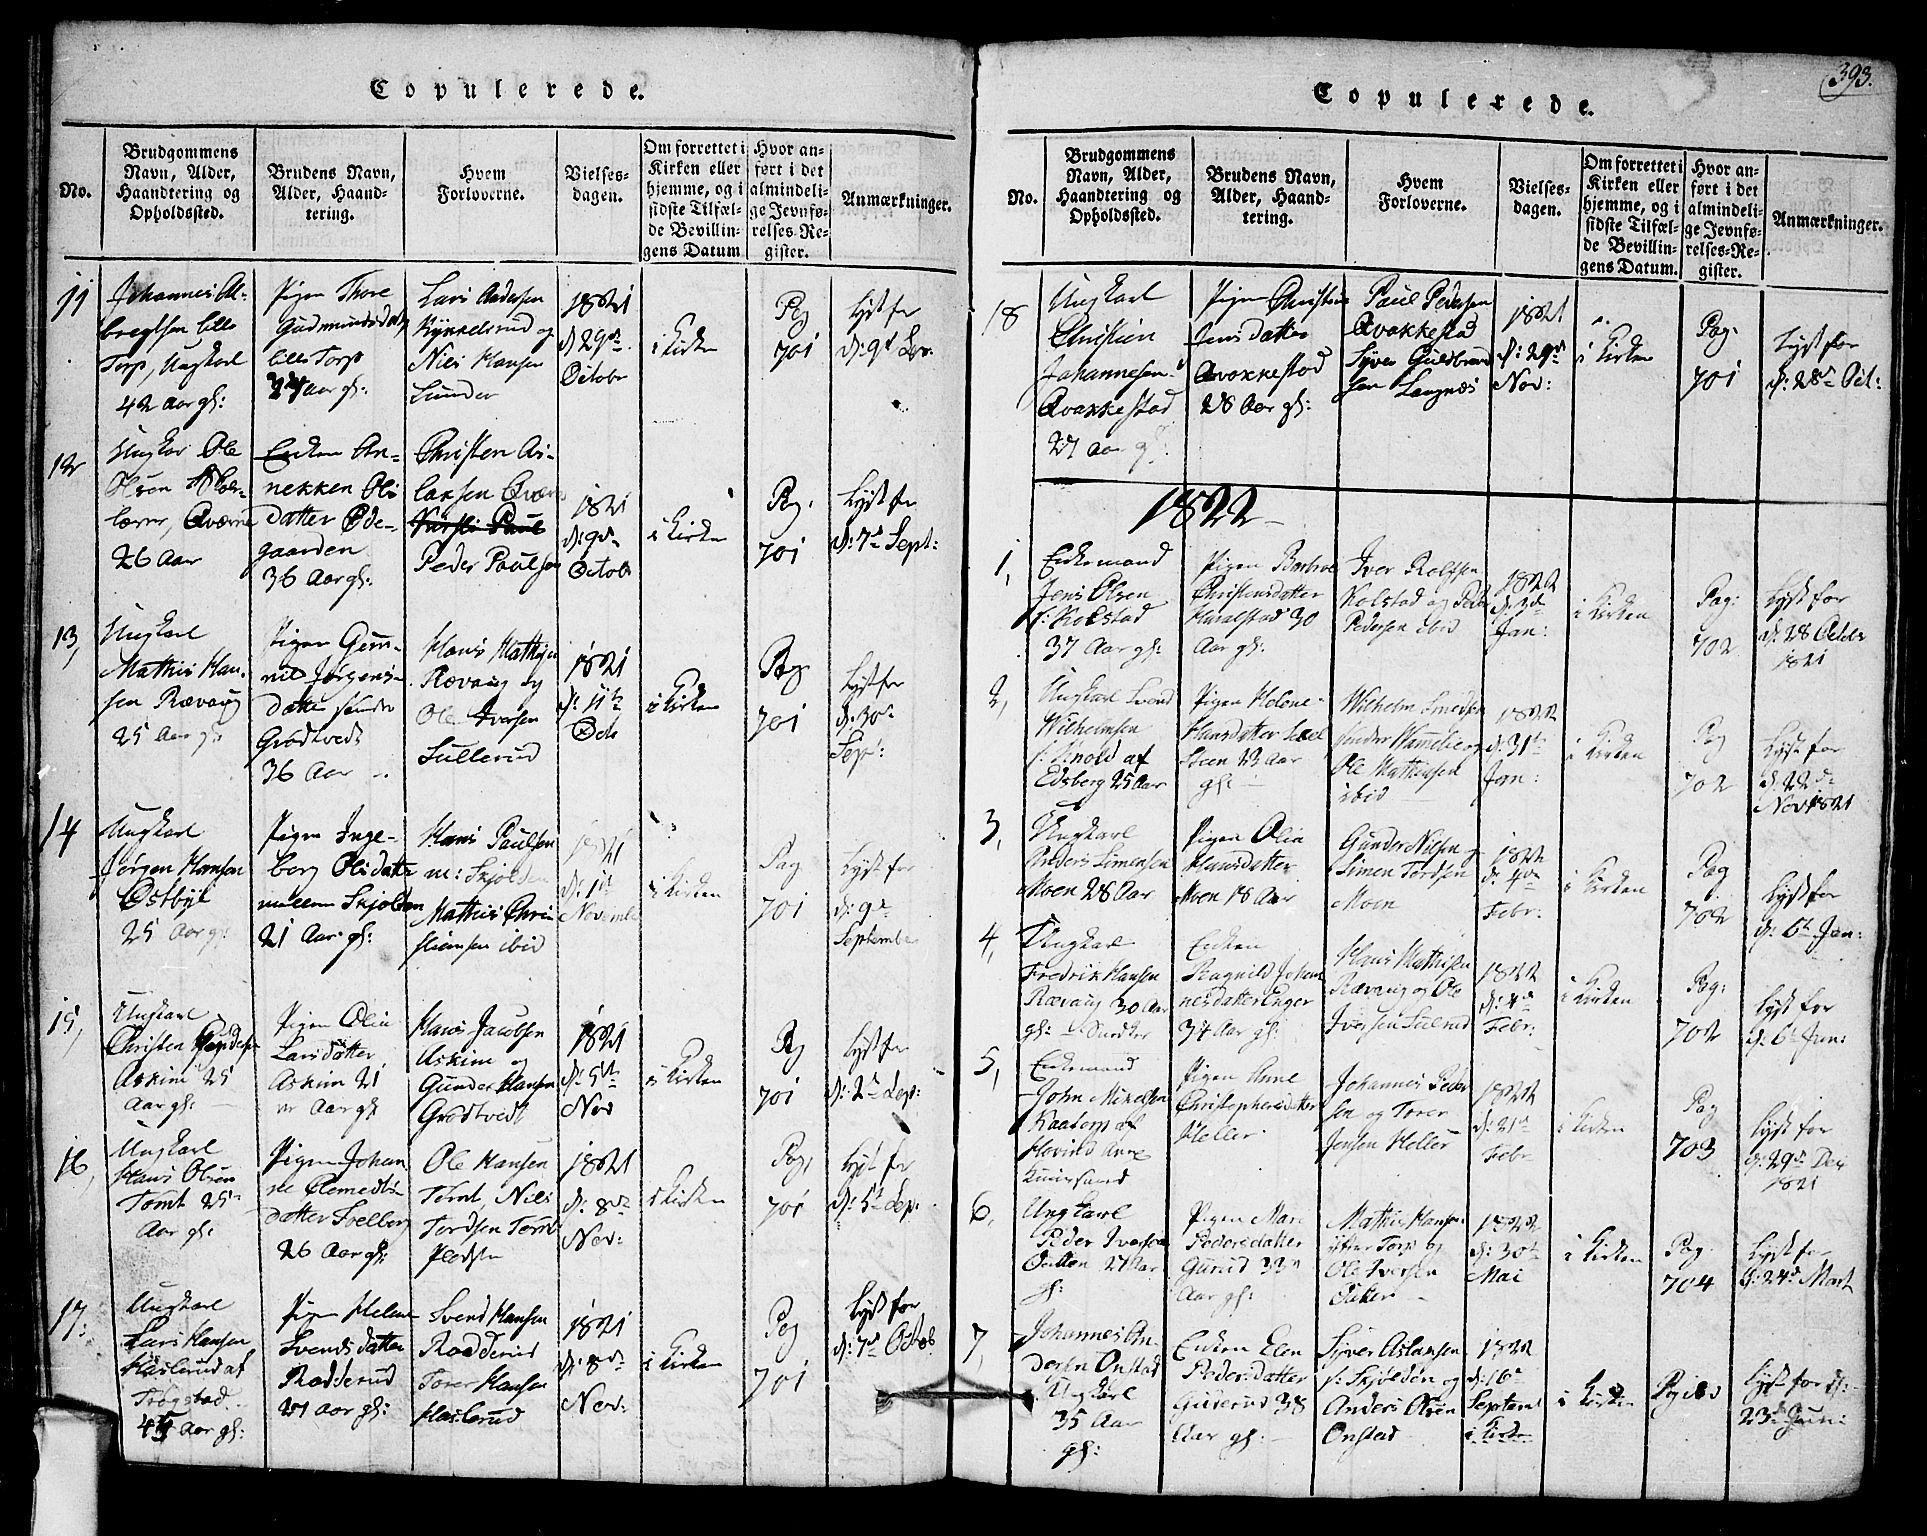 393.
Copulerede.
No.
Brudgommens
Navn, Alder,
Haandtering og
Opholdssted.
Brudens Navn,
Alder, Haand-
tering.
Hvem
Forloverne.
Vielses-
dagen.
Om forrettet i
Kirken eller
hjemme, og i
sidste Tilfæl-
de Bevillin-
gens Datum
Hvor an-
ført i det
almindeli-
ge Jevnfø-
relses-Re-
gister.
Anmærkninger.
11
Johannes Al-
bregtsen Lille
Torp, Ungkarl
42 Aar gl:
Pigen Thore
Gudmundsdatt
Lille Torp
Aar gl:
Lars Andersen
Kykkelsrud og
Niels Hansen
Lunder
1821
d: 29de
Octobr
i Kirken
Pag
701
Lyst for
12
Ungkar Ole
Olsen
Qværne
26 Aar
Enken An-
nekken Ols
datter Øde-
gaarden
36 Aar gl:
Christen As-
laksen Qværn
Peder Paulsen
1821
d: 9de
Octobr
i Kirken
Pag.
701
Lyst for
d: 7d Sept:
13,
Ungkarl
Mathis Han-
sen Rævaug
25 Aar gl:
Pigen Gun-
nil Jørgens-
datter søndre
Grødtvedt
36 Aar
Hans Mathisen
Rævaug og
Ole Iversen
Sullerud
1821
d: 11te
Octr
i Kirken
Pag
701
Lyst for
d: 30d
Sept:
14
Ungkarl
Jørgen Hansen
Østbye
25 Aar gl:
Pigen Inge-
borg Olsdatter
mellem Skjolden
21 Aar gl:
Hans Paulsen
m: Skjolden
Mathis Chri-
stiansen ibid
1821
d: 1te
November
i Kirken
Pag
701
Lyst for
d: 9d
September
15,
Ungkarl
Christen
Askim 25
Aar gl:
Pigen Olia
Larsdatter
Askim 21
Aar gl
Hans Jacobsen
Askim og
Gunder Hansen
Grødtvedt
1821
d: 5te
Nov
i Kirken
Pag
701
Lyst for
d: 2d Sep:
16,
Ungkarl
Hans Olsen
Tomt 25
Aar gl:
Pigen Johan
ne Clemedts-
datter Svelberg
26 Aar gl:
Ole Hansen
Tomt, Niels
Tordsen Tomt
Pladsen
1821
d: 8de
Nov:
i Kirken
Pag,
701
Lyst for
d: 5t Sep:
17:
Ungkarl
Lars Hansen
Haslerud af
Trøgstad
Aar gl:
Pigen Helene
Svendsdatter
Rodderud
27 Aar gl:
Svend Hansen
Rodderud
Torer Hansen
Haslerud
1821
d: 8de
Nov:
i Kirken
Pag
701
Lyst for
d: 7d Octob
Copulerede.
No.
Brudgommens
Navn, Alder,
Haandtering og
Opholdssted.
Brudens Navn,
Alder, Haand-
tering.
Hvem
Forloverne.
Vielses-
dagen.
Om forrettet i
Kirken eller
hjemme, og i
sidste Tilfæl-
de Bevillin-
gens Datum.
Hvor an-
ført i det
almindeli-
ge Jevnfø-
relses-Re-
gister.
Anmærkninger.
18
Ungkarl
Christian
Johannesen
Qvakkestad
27 Aar gl:
Pigen Christine
Jensdatter
Qvakkestad
28 Aar gl:
Paul Pedersen
Qvakkestad
Syver Guldbrand
sen Langnæs
1821
d: 29de
Nov:
i Kirken
Pag.
701
Lyst for
d: 28d Oct:
1822
1,
Enkemand
Jens Olsen
Kolstad
37 Aar gl:
Pigen Barbroe
Christensdatter
Haralstad 30
Aar gl:
Iver Rolfsen
Kolstad og Peder
Pedersen ibid
1822
d: 3de
Jan:
i Kirken
Pag:
702
Lyst for
d: 28 Octbr
1821
2,
Ungkarl Svend
Wilhelmsen
af
Edsberg 25 Aar
Pigen Helene
Hansdatter
Steen 23 Aar
gl:
Wilhelm
og
Ole Mathiesen
ibid
1822
d: 31te
Jan:
i Kirken
Pag
702
Lyst for
d: 22de
Nov 1821
3,
Ungkarl
Anders Simensen
Moen 28 Aar
Pigen Olia
Hansdatter
Moen 18 Aar
Gunder Nilsen og
Simen Tordsen
Moen
1822
d: 4de
Febr:
i Kirken
Pag
702
Lyst for
d: 6t Jan:
4,
Ungkarl
Fredrik Hansen
Rævaug 30 Aar
gl:
Enken
Ragnild Johan
nesdatter Unger
34 Aar gl:
Hans Mathisen
Rævaug og Ole
Iversen Sulerud
1822
d: 4de
Febr:
i Kirken
Pag:
702
Lyst for
d: 6t Jan:
5,
Enkemand
John Mikelsen
Kaatorp af
Hovind Annex
Pigen Anne
Christophersdatter
Heller
Johannes Peder
sen og Torer
Jensen Heller
1822
d: 21de
Febr
i Kirken
Pag
703
Lyst for
d: 29d Dec
1821
6,
Ungkarl
Peder Iversen
27 Aar
gl:
Pigen Mari
Pedersdatter
Gurud 33
Aar gl:
Mathis Hansen
Torp og
Ole Iversen
1822
d: 30te
Mai
i Kirken
Pag.
704
Lyst for
d: 24d Mart
7,
Johannes An-
dersen Onstad
Ungkarl
35 Aar
gl:
Enken Elen
Pedersdatter
Guderud 38
Aar gl:
Syver Aslaksen
Skjolden og
Anders Olsen
Onstad
1822
d: 16de
Septem
i Kirk
i Kirken
Pag ibid
Lyst for d:
23d Jun: